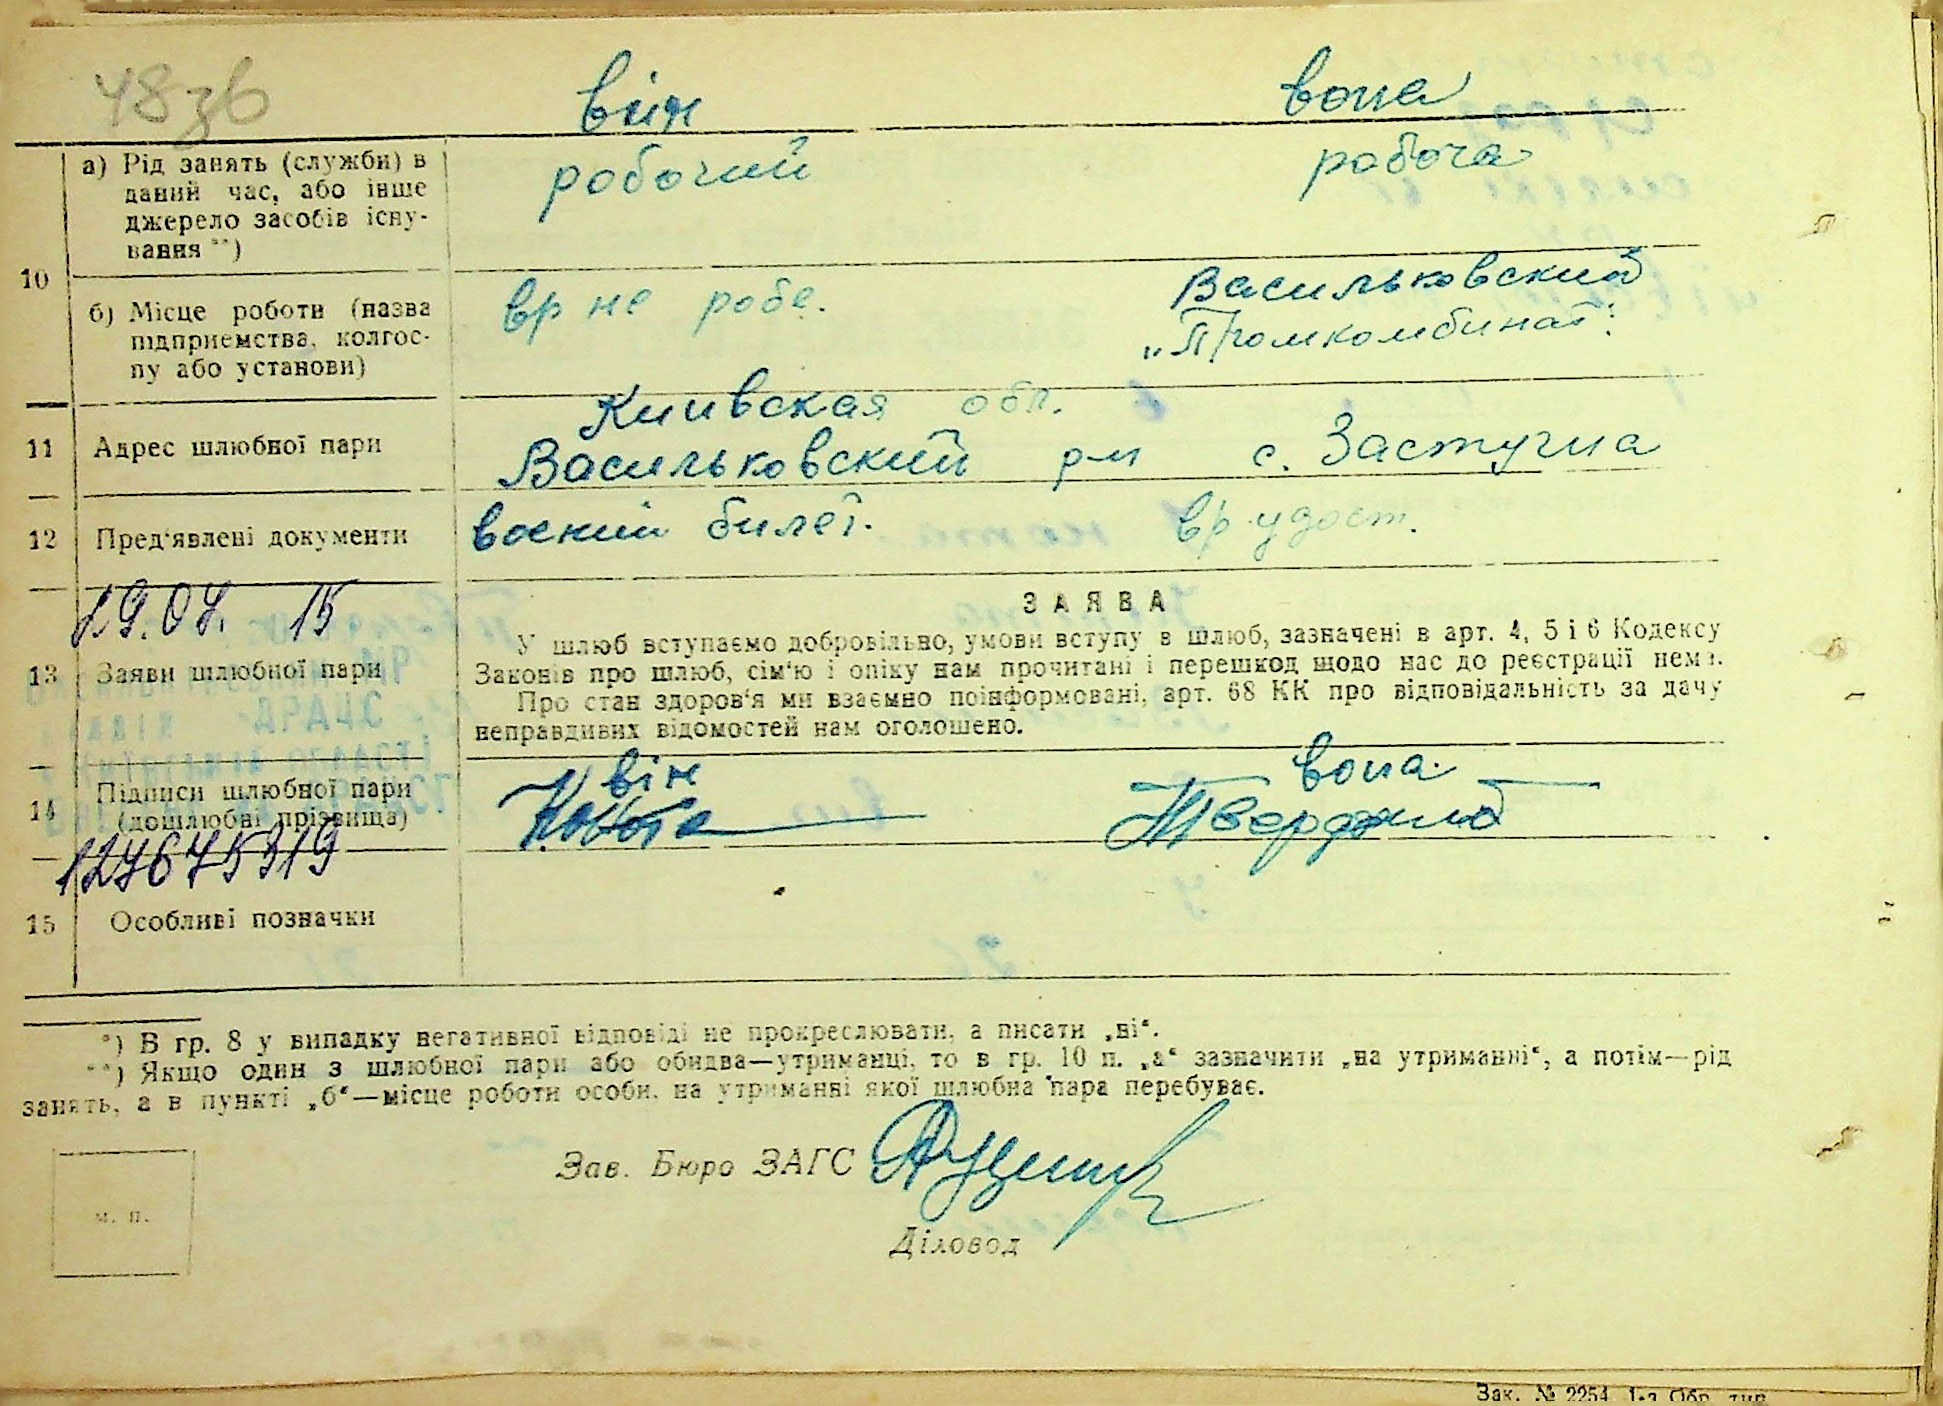 48зв
він вона
а) Рід занять (служби) в
даний час, або інше
джерело засобів існу-
вання **)
робочий робоча
10
б) Місце роботи (назва
підприемства, колгос-
пу або установи)
вр не робе. Васильковский
„Промкомбинат"
11 Адрес шлюбної пари
Киивская обл.
Васильковский р-н с. Застугна
12 Пред'явлені документи
воений билет. вр удост.
19.07. 15
13 Заяви шлюбної пари
ЗАЯВА
У шлюб вступаємо добровільно, умови вступу в шлюб, зазначені в арт. 4, 5 і 6 Кодексу
Законів про шлюб, сім'ю і опіку нам прочитані і перешкод щодо нас до реєстрації нема.
Про стан здоров'я ми взаємно поінформовані, арт. 68 КК про відповідальність за дачу
неправдивих відомостей нам оголошено.
14 Підписи шлюбної пари
(дошлюбні прізвища)
він вона
127675319
15 Особливі позначки
*) В гр. 8 у випадку негативної відповіді не прокреслювати, а писати „ні".
**) Якщо один з шлюбної пари або обидва—утриманці, то в гр. 10 п. „а" зазначити „на утриманні", а потім—рід
занять, а в пункті „б"—місце роботи особи, на утриманні якої шлюбна пара перебуває.
Зав. Бюро ЗАГС
Діловод
м. п.
Зак. № 2254. 1-а Обр. тип.